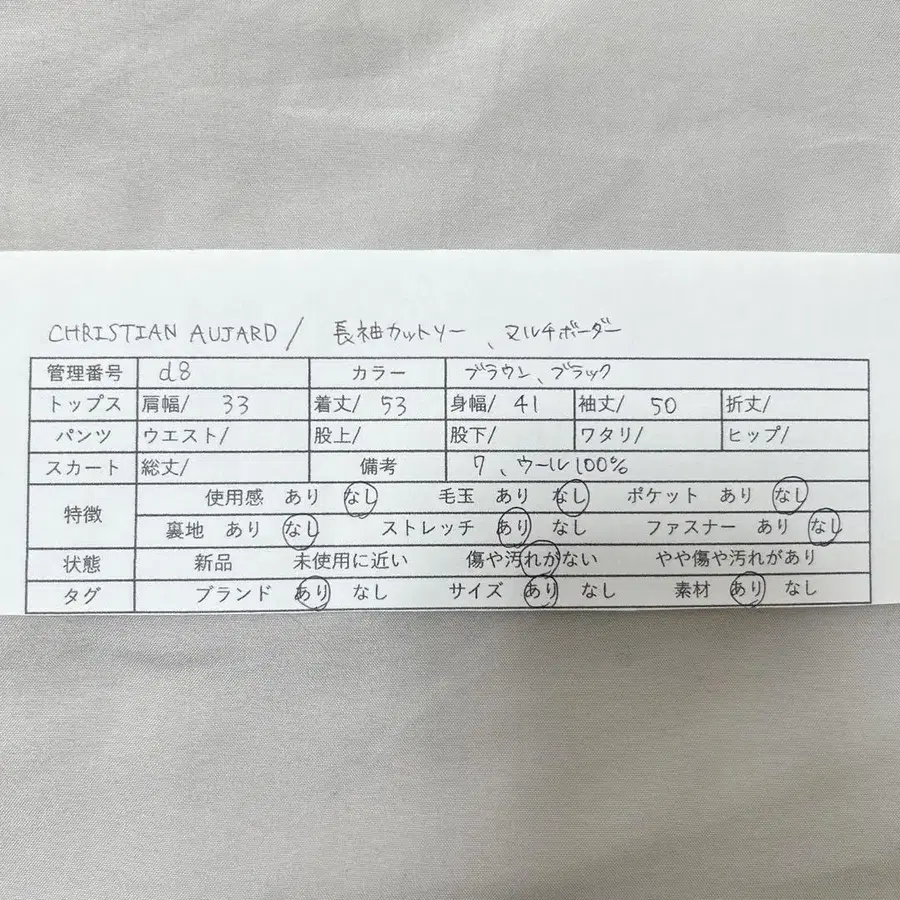 CHRISTIAN AUJARD / 長袖カットソー 、マルチボーダー
管理番号 d8 カラー ブラウン、ブラック
トップス 肩幅/ 33 着丈/ 53 身幅/ 41 袖丈/ 50 折丈/
パンツ ウエスト/ 股上/ 股下/ ワタリ/ ヒップ/
スカート 総丈/ 備考 7 、ウール100%
特徴 使用感 あり なし 毛玉 あり なし ポケット あり なし
裏地 あり なし ストレッチ あり なし ファスナー あり なし
状態 新品 未使用に近い 傷や汚れがない やや傷や汚れがあり
タグ ブランド あり なし サイズ あり なし 素材 あり なし